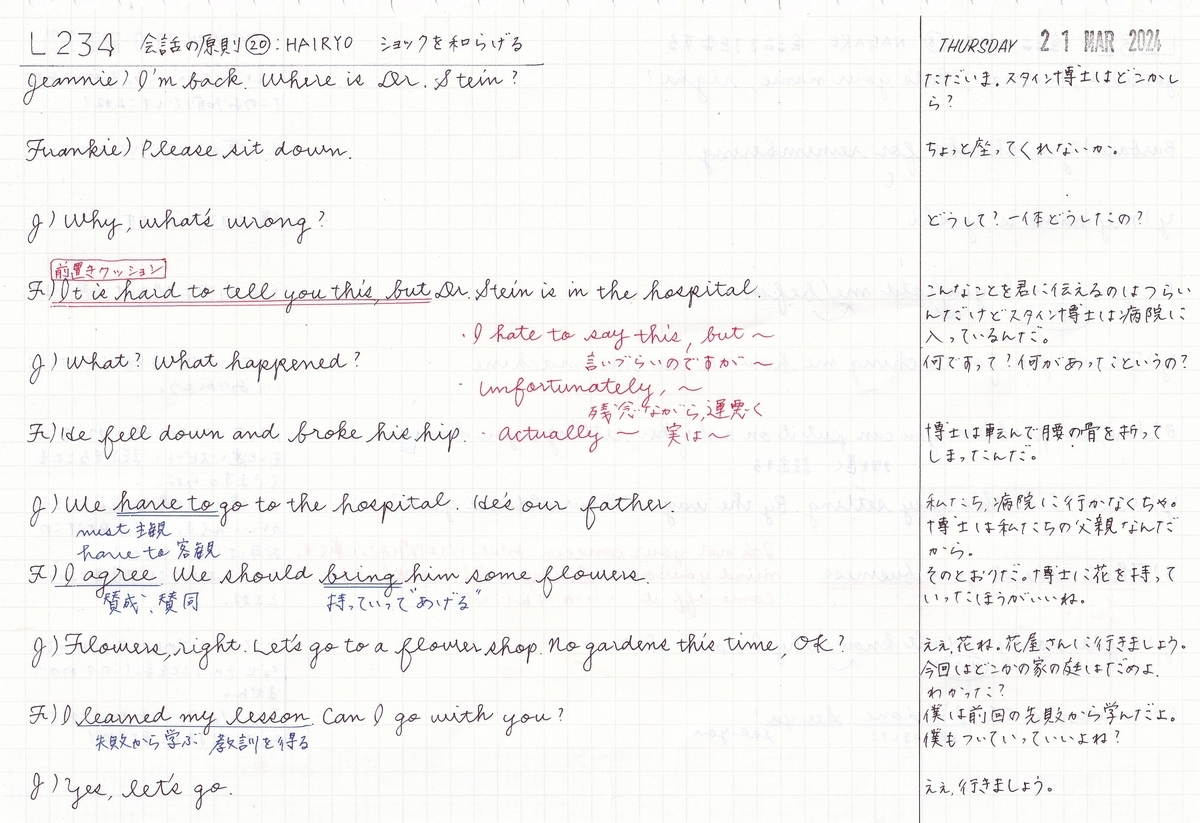 L234 会話の原則⑳:HAIRYO ショックを和らげる
THURSDAY 21 MAR 2024
Jeannie) I'm back. Where is Dr. Stein?
ただいま。スタイン博士はどこかし
ら?
Frankie) Please sit down.
ちょっと座ってくれないか。
J) Why, what's wrong?
どうして?一体どうしたの?
前置きクッション
F) It is hard to tell you this, but Dr. Stein is in the hospital.
こんなことを君に伝えるのはつらい
んだけどスタイン博士は病院に
入っているんだ。
・I hate to say this, but ~
言いづらいのですが~
J) What? What happened?
何ですって?何があったというの?
・unfortunately, ~
残念ながら,運悪く
F) He fell down and broke his hip.
・actually ~ 実は~
博士は転んで腰の骨を折って
しまったんだ。
J) We have to go to the hospital. He's our father.
must 主観
have to 客観
私たち,病院に行かなくちゃ。
博士は私たちの父親なんだ
から。
F) I agree. We should bring him some flowers.
賛成、賛同
持っていって"あげる"
そのとおりだ。博士に花を持って
いったほうがいいね。
J) Flowers, right. Let's go to a flower shop. No gardens this time, OK?
ええ,花ね。花屋さんに行きましょう。
今回はどこかの家の庭はだめよ.
わかった?
F) I learned my lesson. Can I go with you?
失敗から学ぶ 教訓を得る
僕は前回の失敗から学んだよ。
僕もついていっていいよね?
J) Yes, let's go.
ええ,行きましょう。